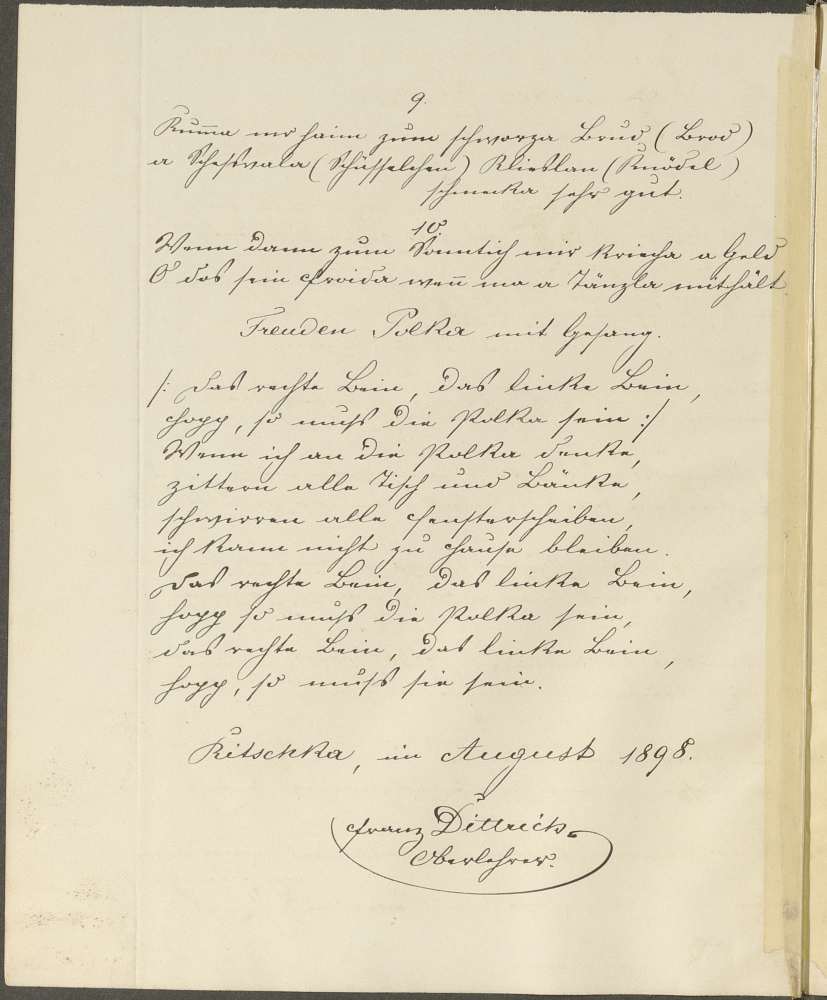 9.
Kumma mr haim zum schworza Brud (Brod)
a Schesswala (Schüsselchen) Klieslan (Knödel)
schmecka sehr gut.
10.
Wenn dann zum Sonntich mir kriecha a Geld
O dos sein Froida weñ ma a Tänzla mithält.
Freuden Polka mit Gesang.
/: Das rechte Bein, das linke Bein,
hopp, so muß die Polka sein :/
Wenn ich an die Polka denke,
zittern alle Tisch und Bänke,
schwirren alle Fensterscheiben,
ich kann nicht zu Hause bleiben.
Das rechte Bein, das linke Bein,
hopp so muß die Polka sein,
das rechte Bein, das linke Bein,
hopp, so muß sie sein.
Ritschka, im August 1898.
Franz Dittrich
Oberlehrer.